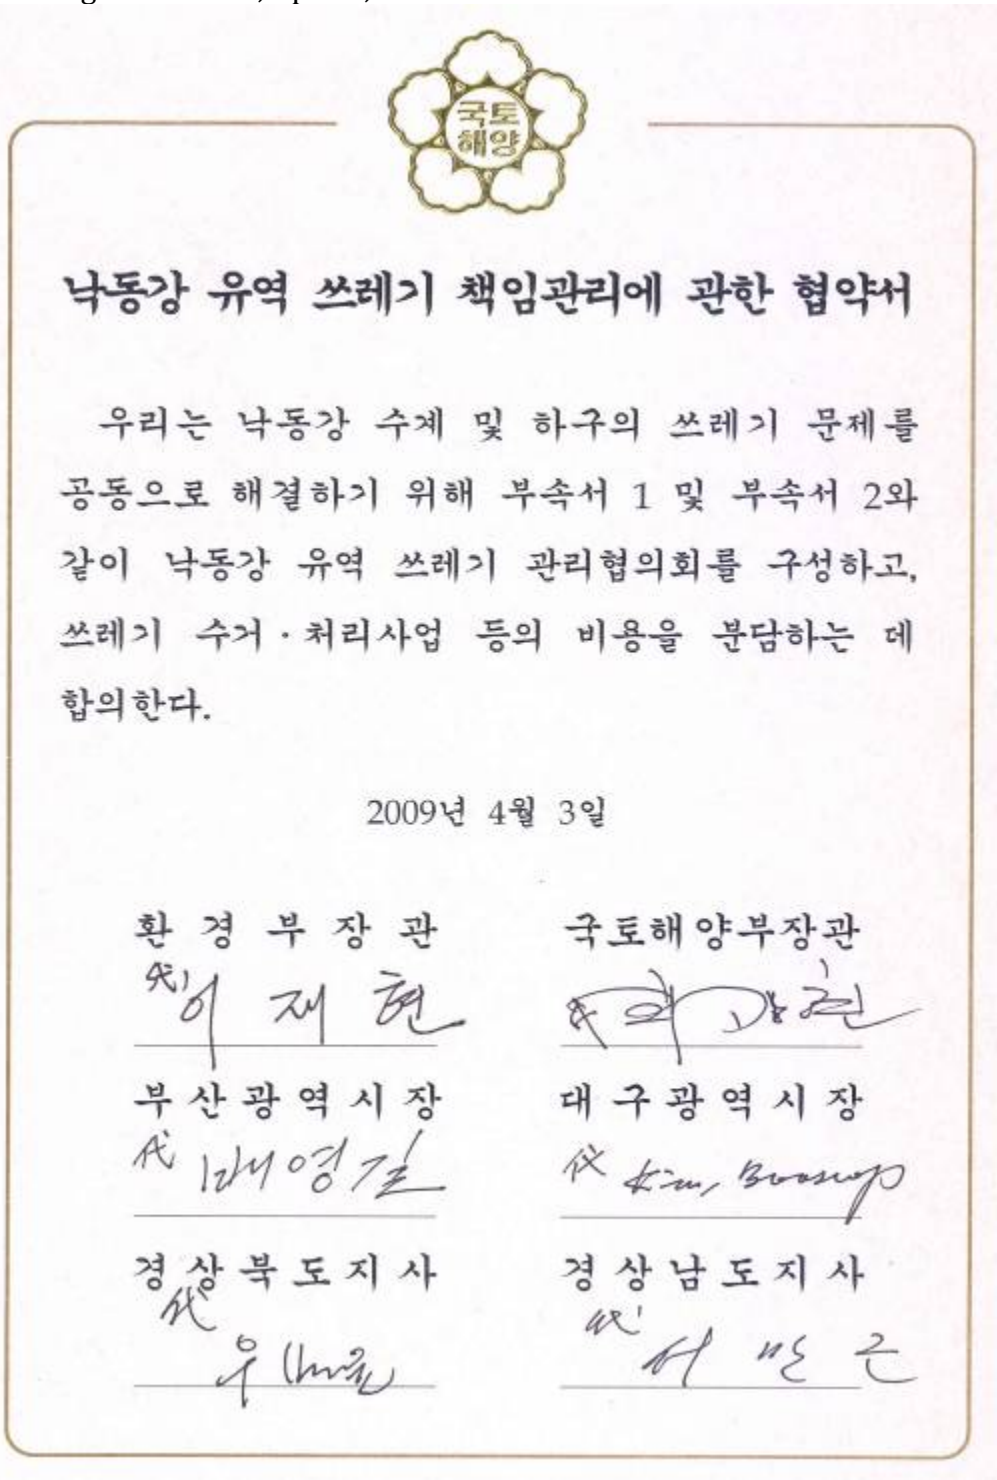 국토
해양
낙동강 유역 쓰레기 책임관리에 관한 협약서
우리는 낙동강 수계 및 하구의 쓰레기 문제를
공동으로 해결하기 위해 부속서 1 및 부속서 2와
같이 낙동강 유역 쓰레기 관리협의회를 구성하고,
쓰레기 수거·처리사업 등의 비용을 분담하는 데
합의한다.
2009년 4월 3일
환경부장관 국토해양부장관
代 이재현 代
부산광역시장 대구광역시장
代 배영길 代 Kim,
경상북도지사 경상남도지사
代 代 서만근